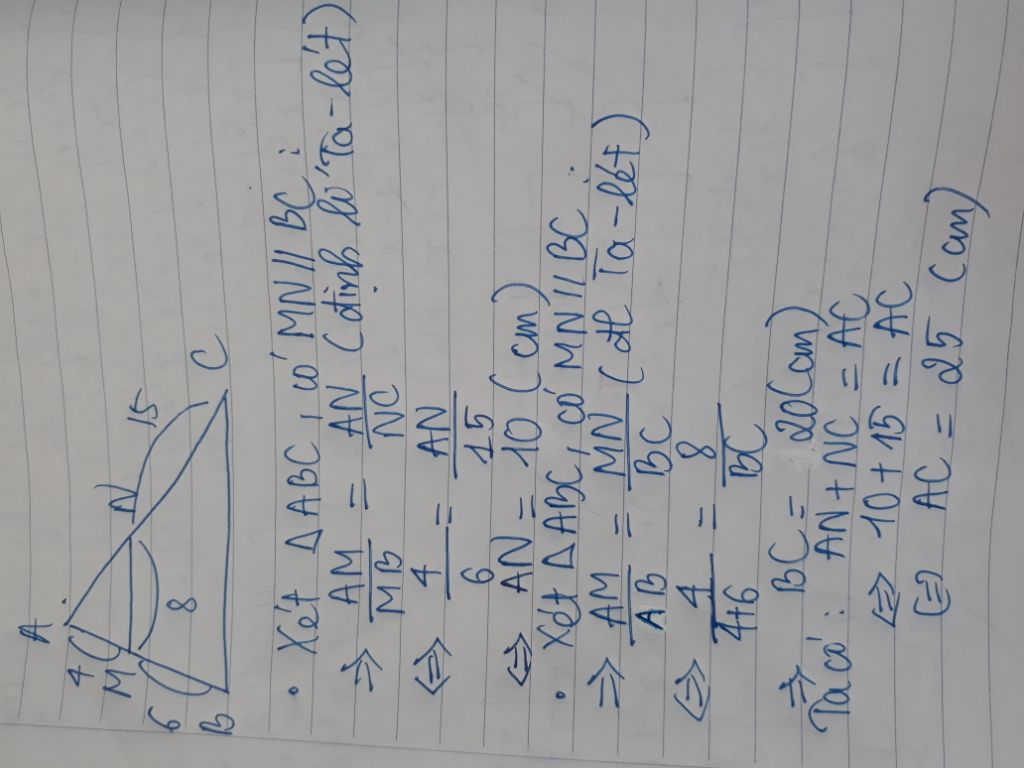 A
4
M
N
15
8
6
B
C
• Xét Δ ABC, có MN // BC:
⇒ AM/MB = AN/NC (định lí Ta-lét)
⇔ 4/6 = AN/15
⇔ AN = 10 (cm)
• Xét ΔABC, có MN // BC:
⇒ AM/AB = MN/BC (đl Ta-lét)
⇔ 4/4+6 = 8/BC
⇒ BC = 20 (cm)
Ta có: AN + NC = AC
⇔ 10 + 15 = AC
⇔ AC = 25 (cm)